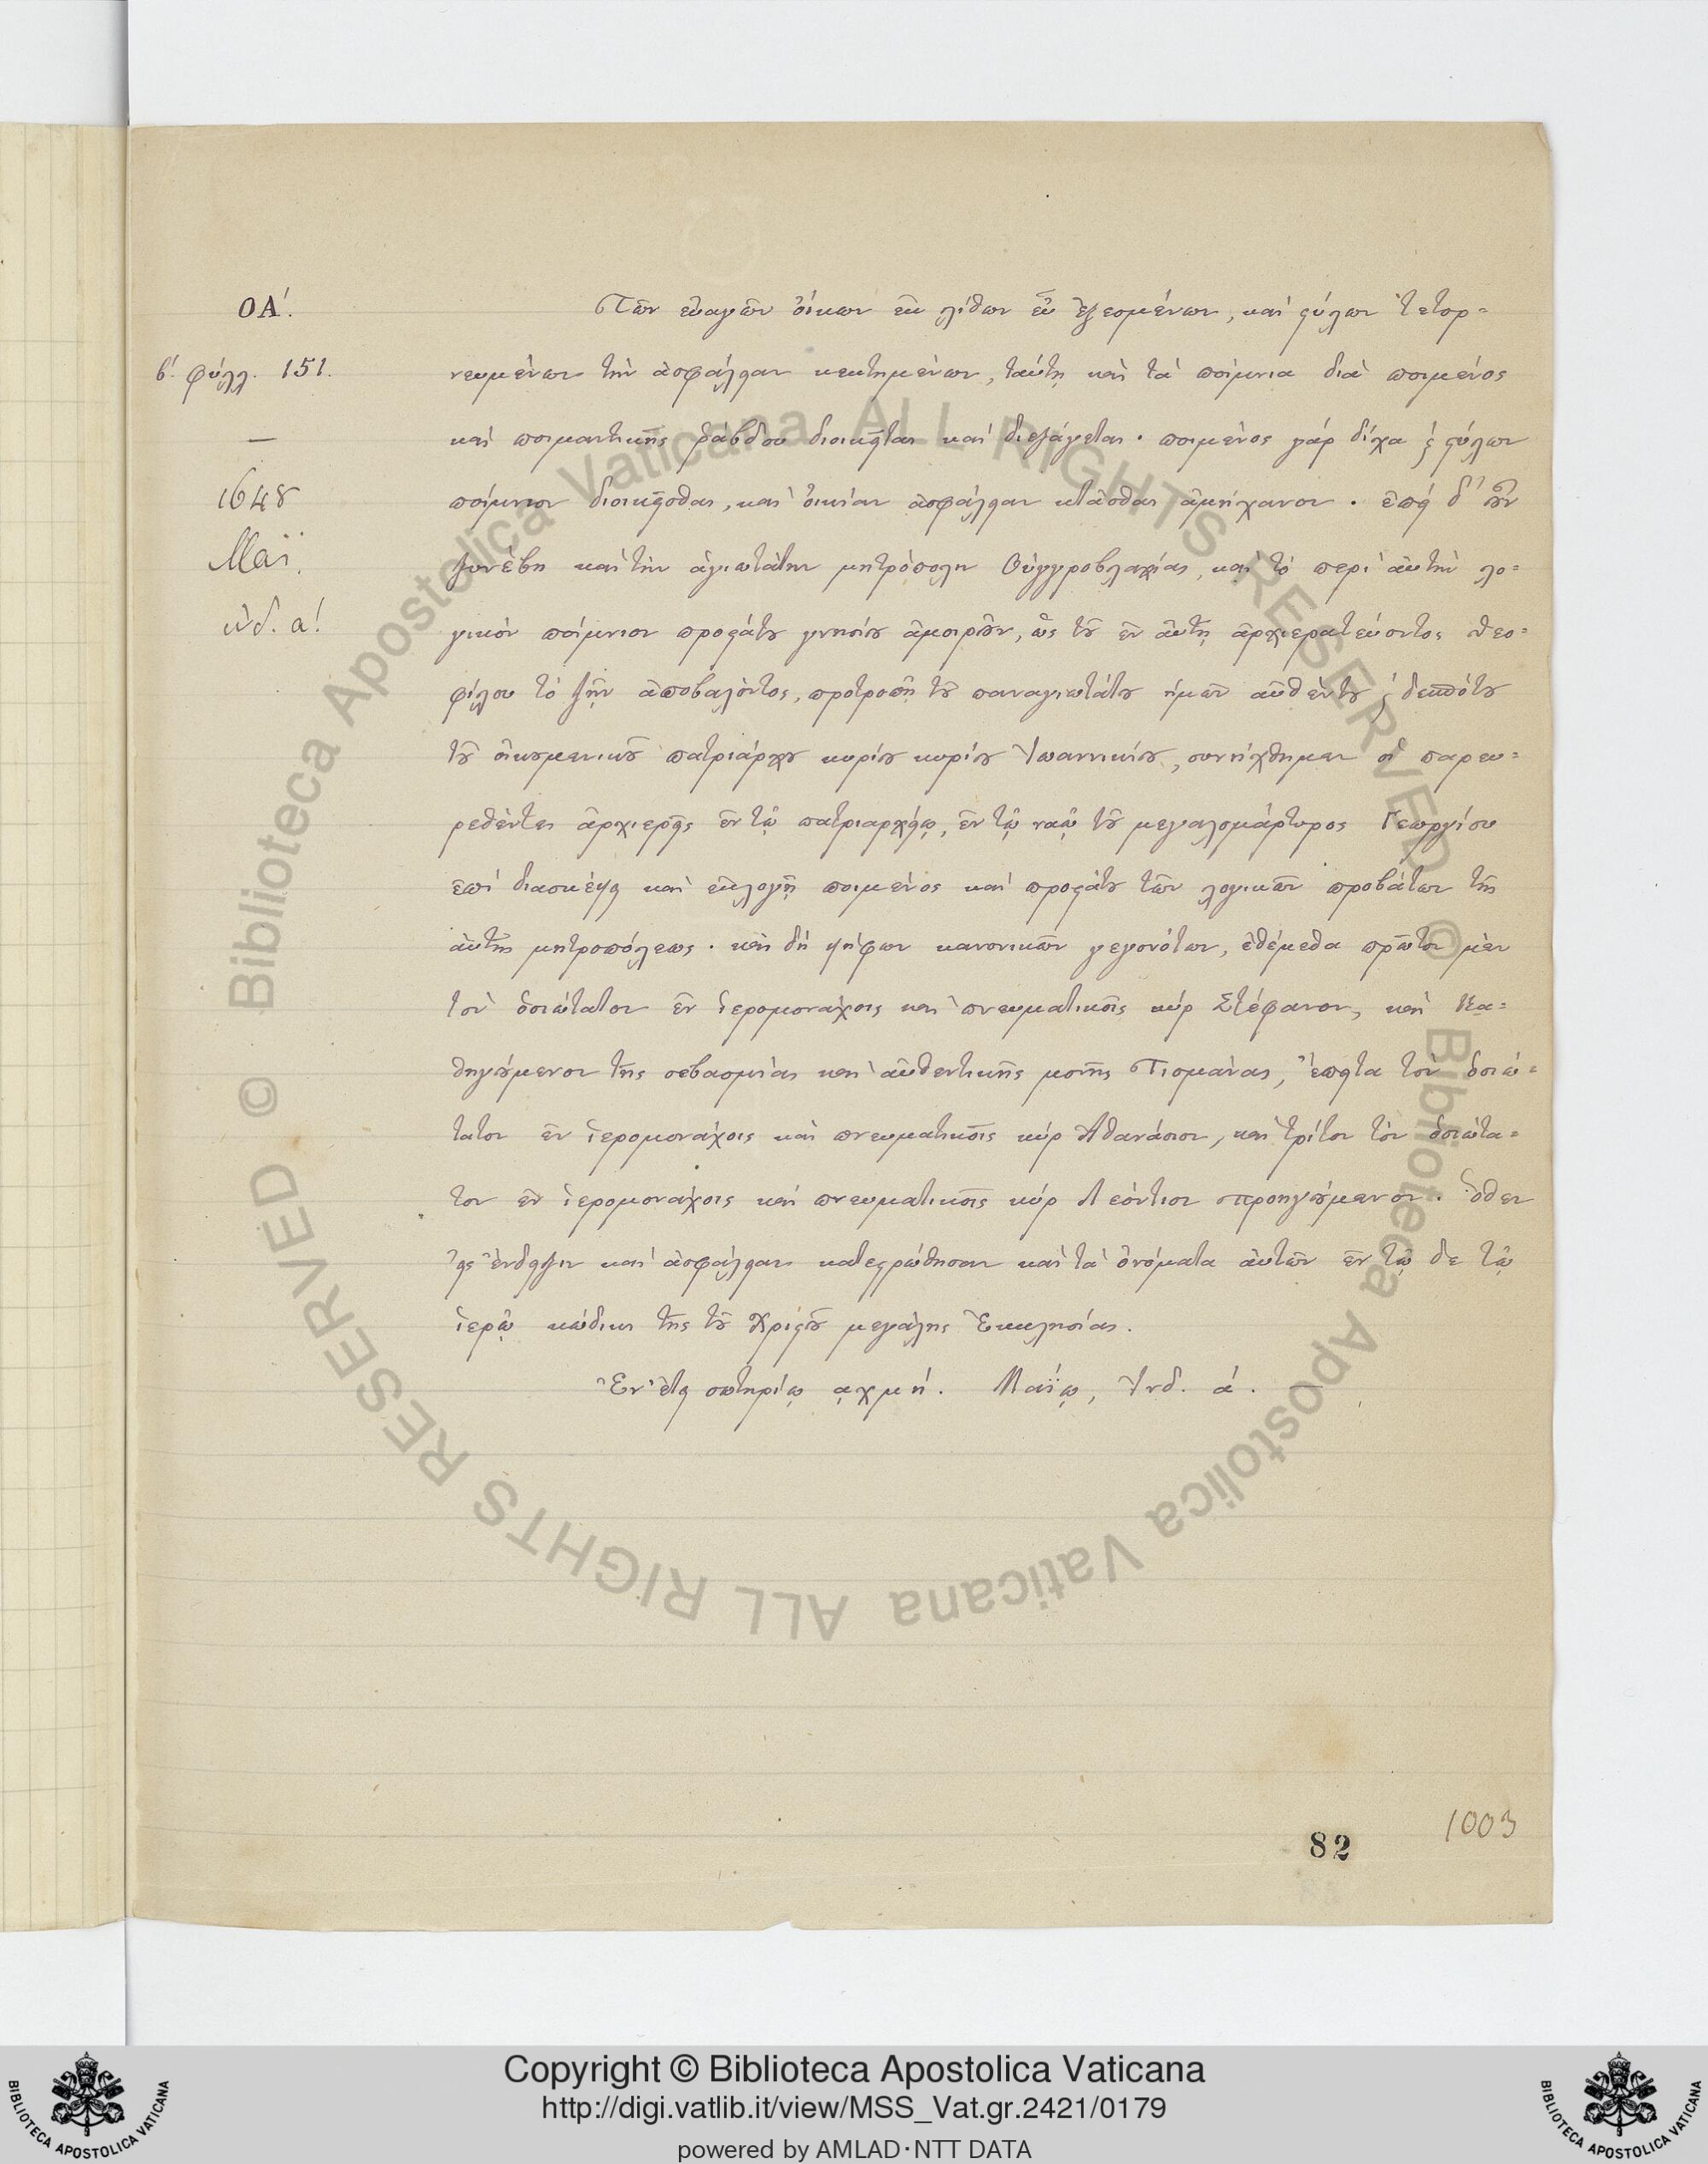 ΟΑ΄.
β΄. φύλλ. 151.
—
1648
Μαΐ.
ἰνδ. α΄.
Τῶν εὐαγῶν οἴκων ἐκ λίθων εὖ ἐξεσμένων, καὶ στύλων τετορ=
νευμένων τὴν ἀσφάλειαν κεκτημένων, ταύτῃ καὶ τὰ ποίμνια διὰ ποιμένος
καὶ ποιμαντικῆς ῥάβδου διοικεῖται καὶ διεξάγεται · ποιμένος γὰρ δίχα ϛ στύλων
ποίμνιον διοικεῖσθαι, καὶ οἰκίαν ἀσφάλειαν κτᾶσθαι ἀμήχανον · ἐπεὶ δ' οὖν
συνέβη καὶ τὴν ἁγιωτάτην μητρόπολιν Οὑγγροβλαχίας, καὶ τὸ περὶ αὐτὴν λο=
γικὸν ποίμνιον προστάτου γνησίου ἀμοιροῦν, ὡς τοῦ ἐν αὐτῇ ἀρχιερατεύοντος Θεο=
φίλου τὸ ζῆν ἀποβαλόντος, προτροπῇ τοῦ παναγιωτάτου ἡμῶν αὐθέντου ϛ δεσπότου
τοῦ οἰκουμενικοῦ πατριάρχου κυρίου κυρίου Ἰωαννικίου, συνήχθημεν οἱ παρευ=
ρεθέντες ἀρχιερεῖς ἐν τῷ πατριαρχείῳ, ἐν τῷ ναῷ τοῦ μεγαλομάρτυρος Γεωργίου
ἐπὶ διασκέψει καὶ ἐκλογῇ ποιμένος καὶ προστάτου τῶν λογικῶν προβάτων τῆς
αὐτῆς μητροπόλεως · καὶ δὴ ψήφων κανονικῶν γεγονότων, ἐθέμεθα πρῶτον μὲν
τὸν ὁσιώτατον ἐν ἱερομονάχοις καὶ πνευματικοῖς κύρ Στέφανον, καὶ Κα=
θηγούμενον τῆς σεβασμίας καὶ αὐθεντικῆς μονῆς Τισμάνας, ἔπειτα τὸν ὁσιώ=
τατον ἐν ἱερομονάχοις καὶ πνευματικοῖς κύρ Ἀθανάσιον, καὶ τρίτον τὸν ὁσιώτα=
τον ἐν ἱερομονάχοις καὶ πνευματικοῖς κύρ Λεόντιον προηγούμενον · ὅθεν
εἰς ἔνδειξιν καὶ ἀσφάλειαν κατεστρώθησαν καὶ τὰ ὀνόματα αὐτῶν ἐν τῷ δε τῷ
ἱερῷ κώδικι τῆς τοῦ Χριστοῦ μεγάλης Ἐκκλησίας.
Ἐν ἔτει σωτηρίῳ αχμή. Μαΐῳ, Ἰνδ. ά.
82
1003
© Biblioteca Apostolica Vaticana ALL RIGHTS RESERVED
© Biblioteca Apostolica Vaticana ALL RIGHTS RESERVED
BIBLIOTECA APOSTOLICA VATICANA
Copyright © Biblioteca Apostolica Vaticana
http://digi.vatlib.it/view/MSS_Vat.gr.2421/0179
powered by AMLAD·NTT DATA
BIBLIOTECA APOSTOLICA VATICANA